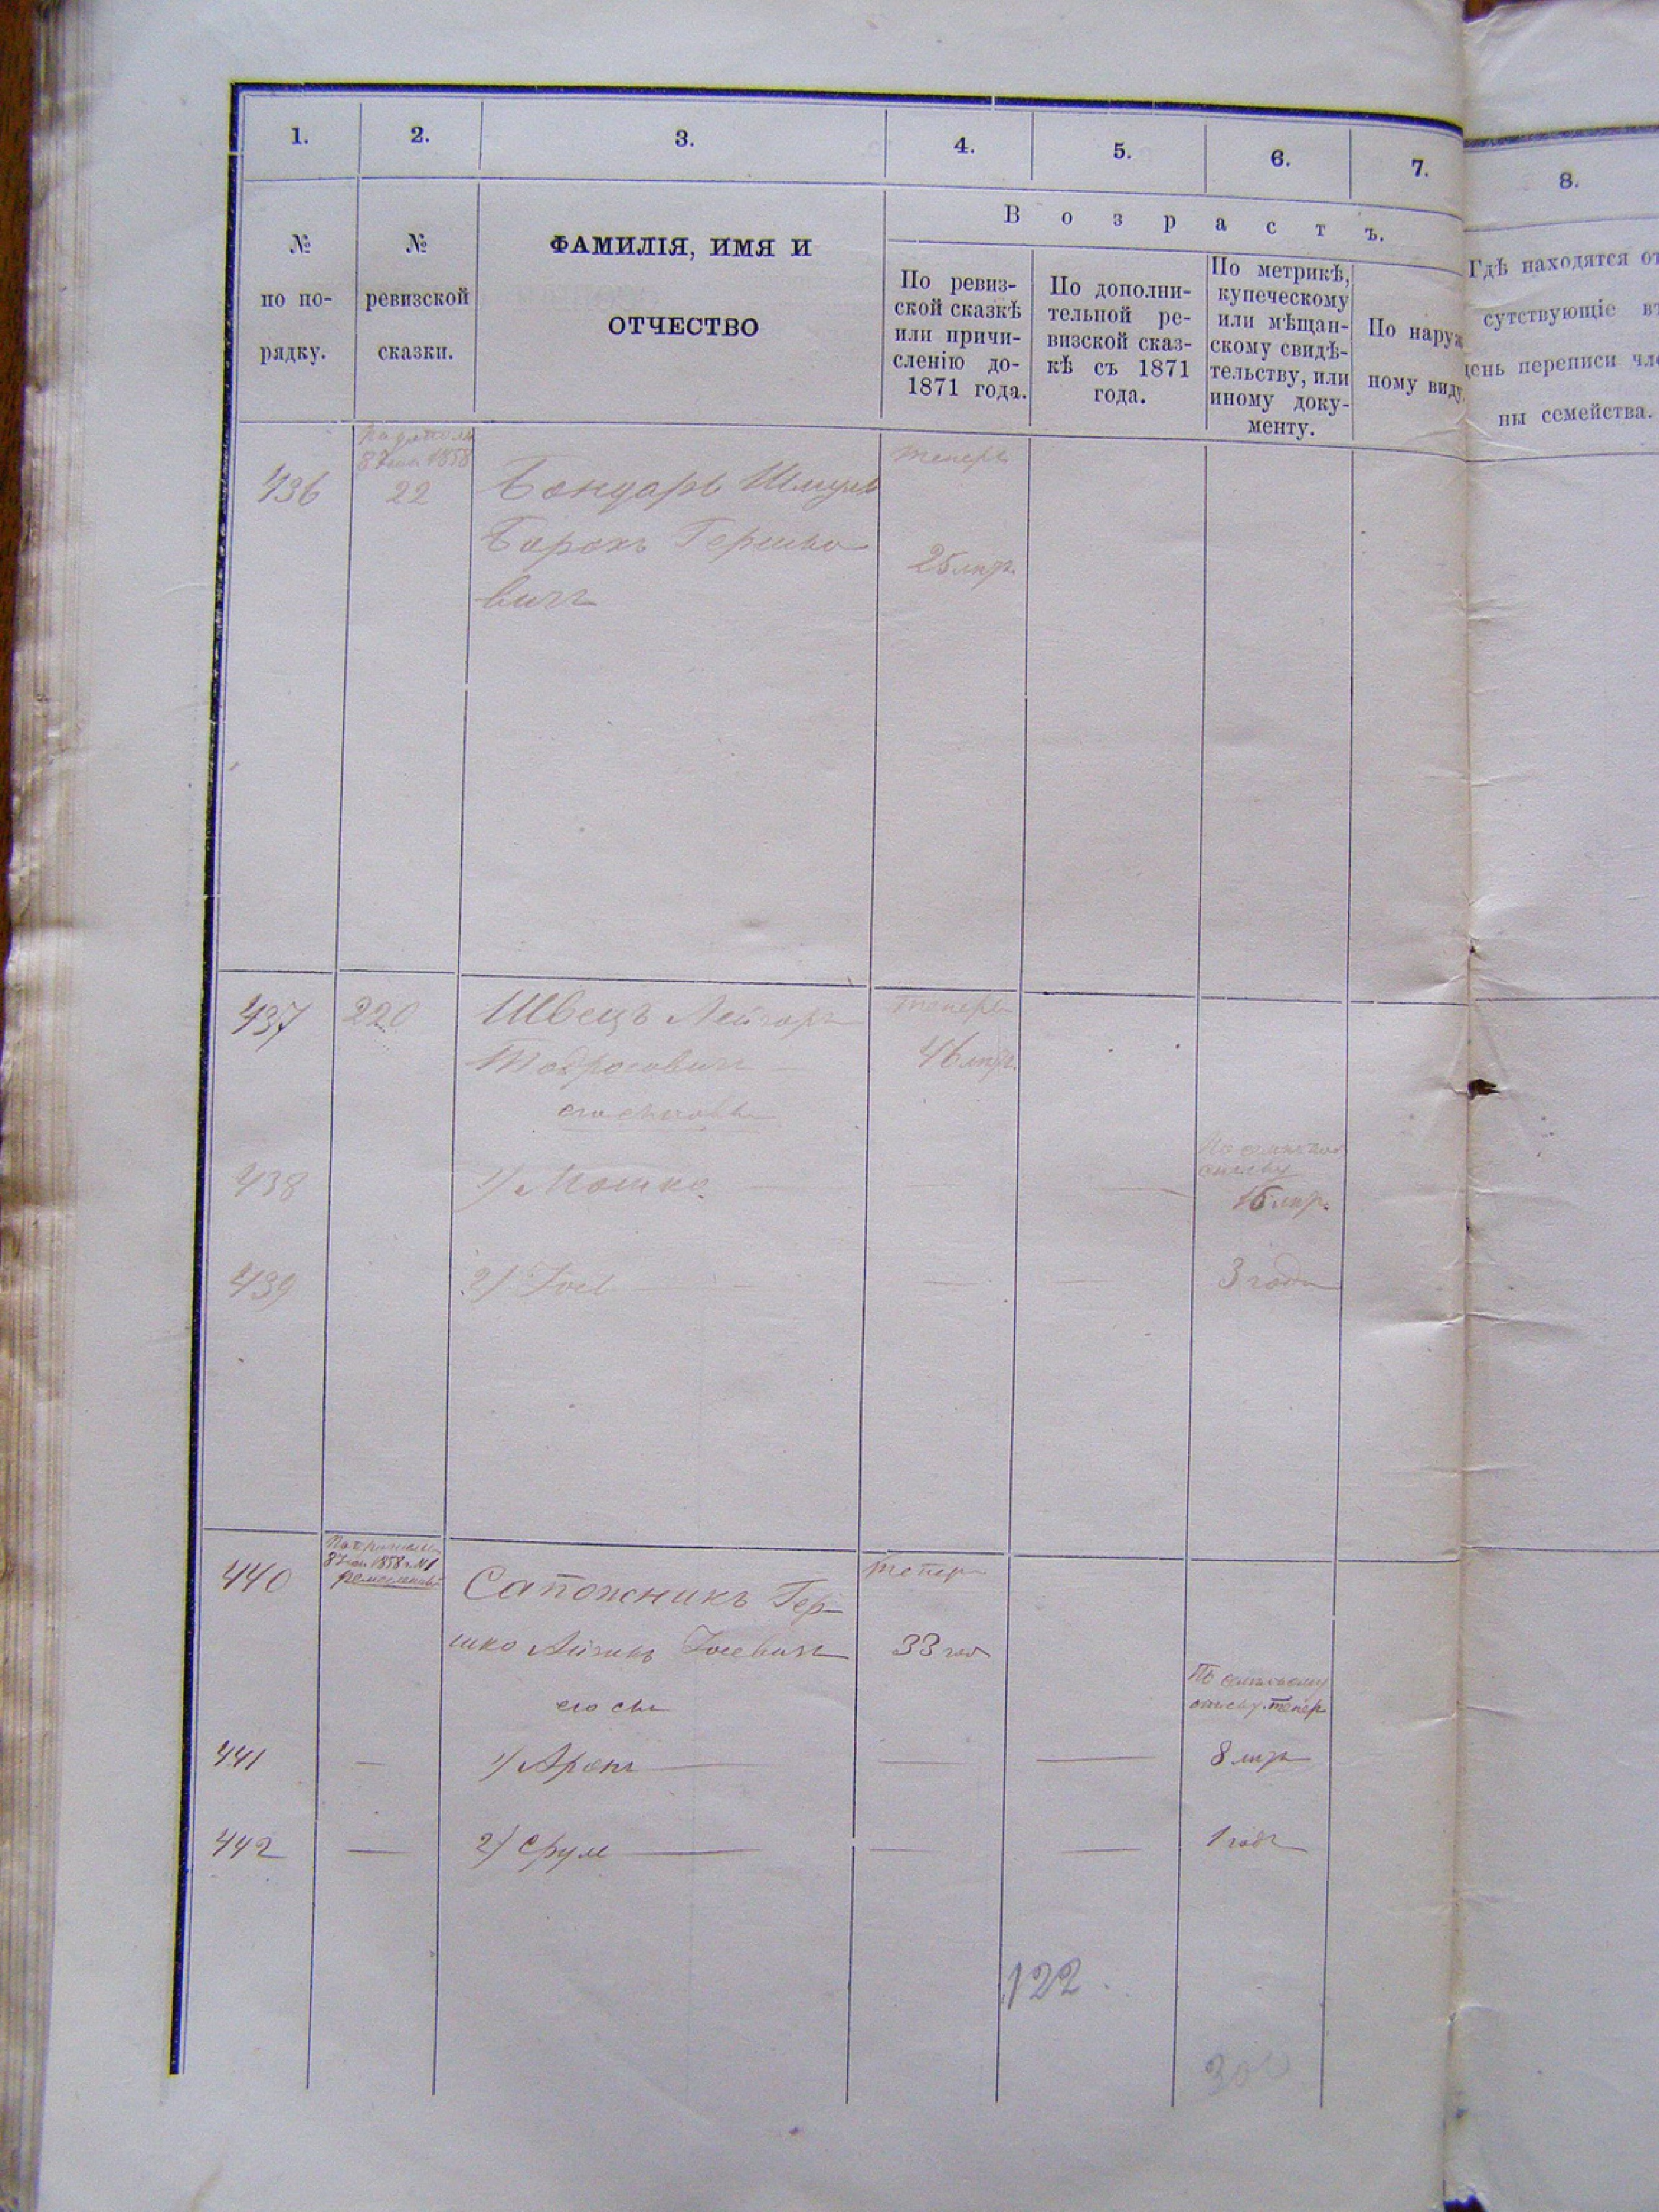 1.
2.
3.
4.
5.
6.
7.
8.
№
по по-
рядку.
№
ревизской
сказки.
ФАМИЛІЯ, ИМЯ И
ОТЧЕСТВО
Возрастъ.
По ревиз-
ской сказкѣ
или причи-
сленію до-
1871 года.
По дополни-
тельной ре-
визской сказ-
кѣ съ 1871
года.
По метрикѣ,
купеческому
или мѣщан-
скому свидѣ-
тельству, или
иному доку-
менту.
По наруж
ному виду.
Гдѣ находятся от
сутствующіе въ
день переписи чле
ны семейства.
436
1858
22
Бондарь Шмуль
Борохъ Гершко
вичъ
теперь
25 лѣтъ
437
220
Швецъ Лейзоръ
Тодросовичъ
его сыновья
теперь
46 лѣтъ
438
1) Мошко
16 лѣтъ
439
2) Іось
3 года
440
1858 г. №1
Сапожникъ Гер-
шко Айзикъ Іосевичъ
его сын
тепер
33 год
441
1) Аронъ
По
списку тепер
8 лѣтъ
442
2) Срул
1 годъ
122